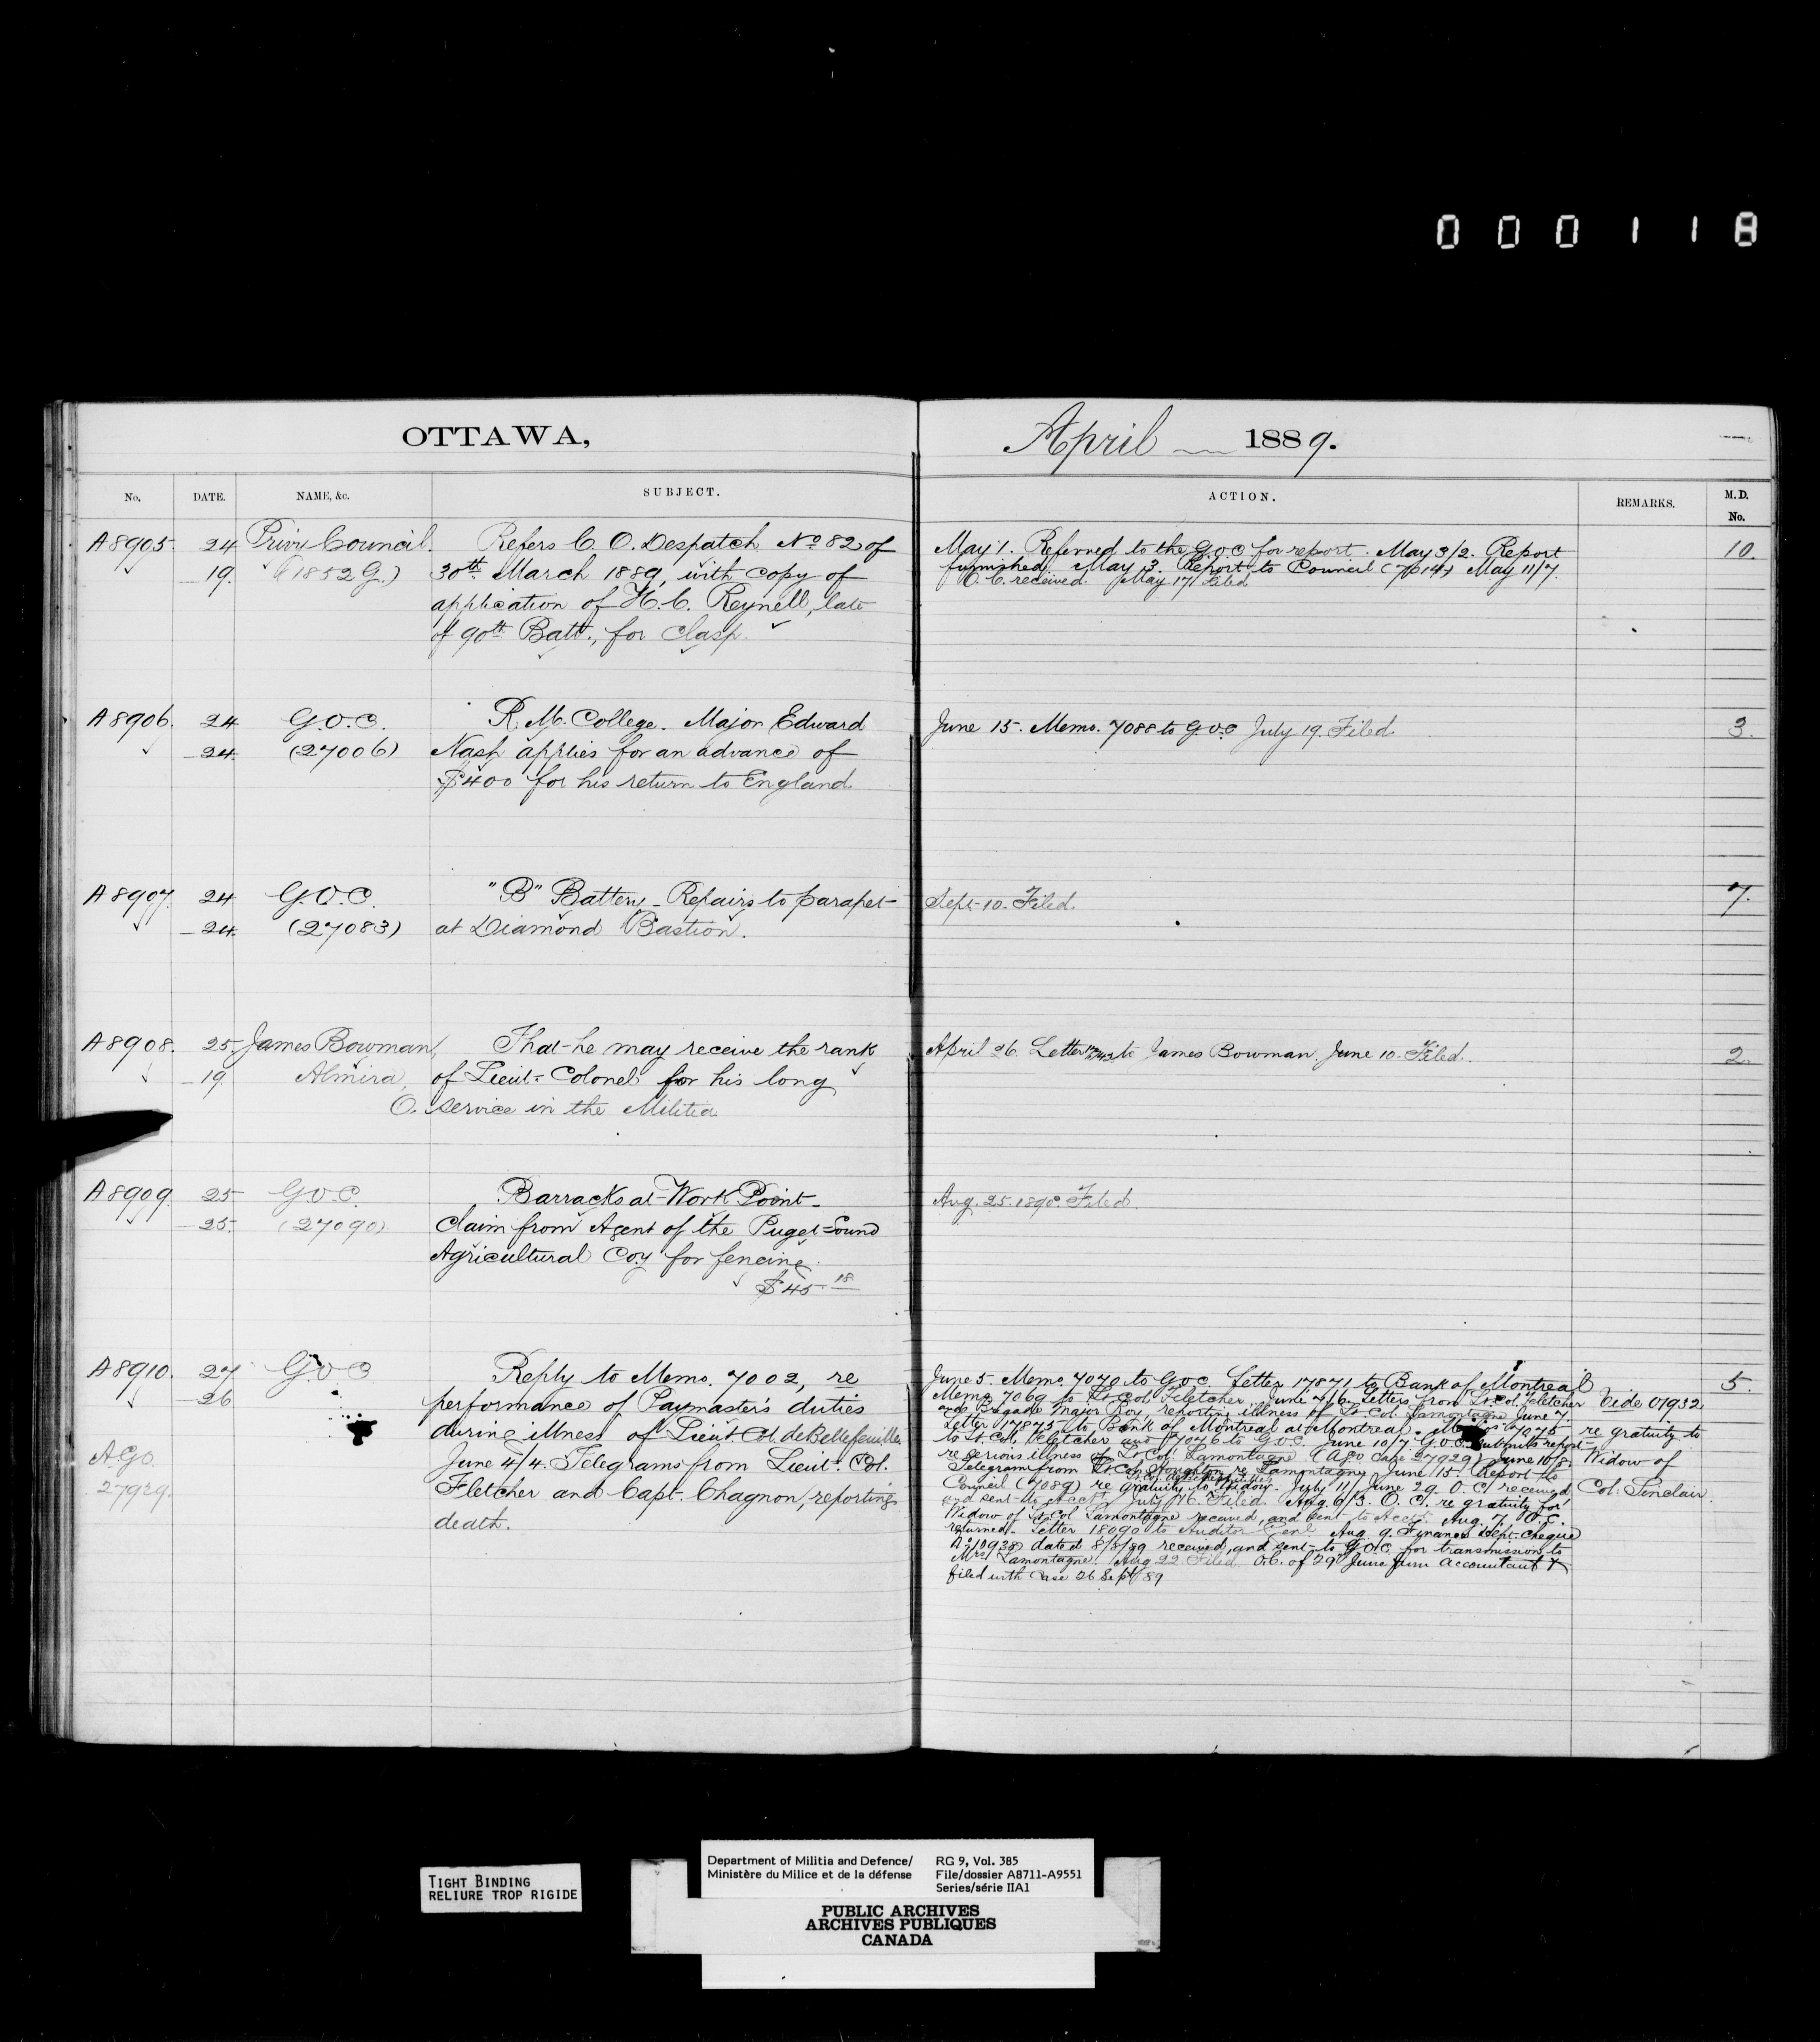 000118
OTTAWA, April 1889.
No. DATE. NAME, &c. SUBJECT. ACTION. REMARKS. M.D. No.
A8905. 24 Privy Council. Refers C. O. Despatch No 82 of
19. (1852 G.) 30th March 1889, with copy of
application of H. C. Reynell, late
of 90th Batt., for Clasp.
May 1. Referred to the G.O.C for report. May 3/2. Report
furnished. May 3. Report to Council (7014) May 11/7.
O. C. received. May 17 Filed
10.
A8906. 24 G.O.C. R. M. College. Major Edward
24. (27006) Nash applies for an advance of
$400 for his return to England.
June 15. Memo. 7088 to G.O.C July 19. Filed.
3.
A8907. 24 G.O.C. "B" Battery - Repairs to parapet
24. (27083) at Diamond Bastion.
Sept. 10. Filed.
7.
A8908. 25. James Bowman, That he may receive the rank
19. Almira, of Lieut-Colonel for his long
O. service in the Militia
April 26. Letter to James Bowman. June 10. Filed.
2.
A8909. 25 G.O.C. Barracks at Work Point-
25. (27090) Claim from Agent of the Puget Sound
Agricultural Coy for fencing.
$45 18
Aug. 25. 1890. Filed.
A8910. 27 G.O.C Reply to Memo. 7002, re
26 performance of Paymaster's duties
during illness of Lieut. Col. de Bellefeuille.
A.G.O. June 4/4. Telegrams from Lieut. Col.
27929. Fletcher and Capt. Chagnon, reporting
death.
June 5. Memo. 7070 to G.O.C. Letter 17871 to Bank of Montreal
Memo 7069 to Lt Col. Fletcher. June 7/6. Letters from Lt. Col. Fletcher
and Brigade Major Roy, reporting illness of Lt. Col. Lamontagne June 7.
Letter 17875 to Bank of Montreal at Montreal. 7075
to Lt Col. Fletcher and 7076 to G.O.C. June 10/7 G.O.C. submits report
re serious illness of Lt Col. Lamontagne (AGO Case 27929) June 10/8.
Telegram from Lt Col Houghton re Lamontagne June 15. Report to
Council (7089) re gratuity to Widow. July 11/ June 29. O. C. received
and sent to Acct. July 16. Filed. Aug. 6/3. O. C. re gratuity for
Widow of Lt Col Lamontagne received, and sent to Acct. Aug. 7. O.C.
returned. Letter 18090 to Auditor Genl. Aug. 9. Finance Dept. cheque
dated 8/8/89 received, and sent to G.O.C. for transmission to
Mrs Lamontagne. Aug 22. Filed. O.C. of 29 June from Accountant &
filed with Case 26 Sept/89
Vide 07932
re gratuity to
Widow of
Col. Sinclair.
5.
TIGHT BINDING
RELIURE TROP RIGIDE
Department of Militia and Defence/
Ministère du Milice et de la défense
RG 9, Vol. 385
File/dossier A8711-A9551
Series/série IIA1
PUBLIC ARCHIVES
ARCHIVES PUBLIQUES
CANADA